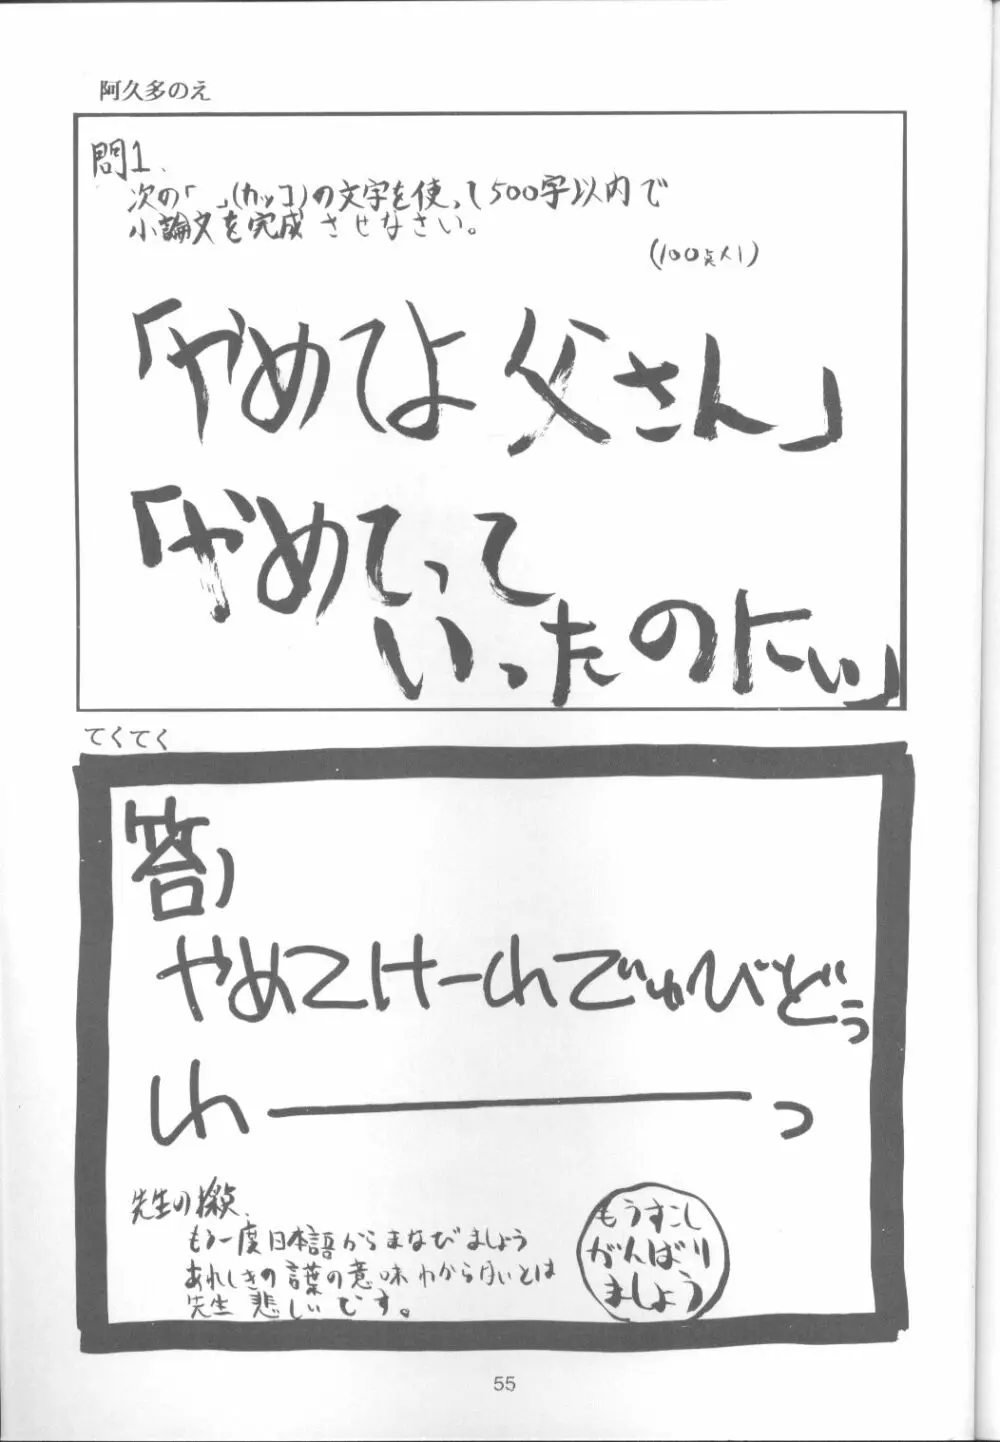 阿久多のえ
問1.
次の「 」(カッコ)の文字を使って500字以内で
小論文を完成させなさい。
(100点人1)
「やめてよ父さん」
「やめてって
いったのにぃ」
てくてく
答)
やめてけーれでぃゆびどぅ
れーっ
先生の採点.
もう一度日本語からまなびましょう
あれしきの言葉の意味わからないとは
先生悲しいです。
もうすこし
がんばり
ましょう
55